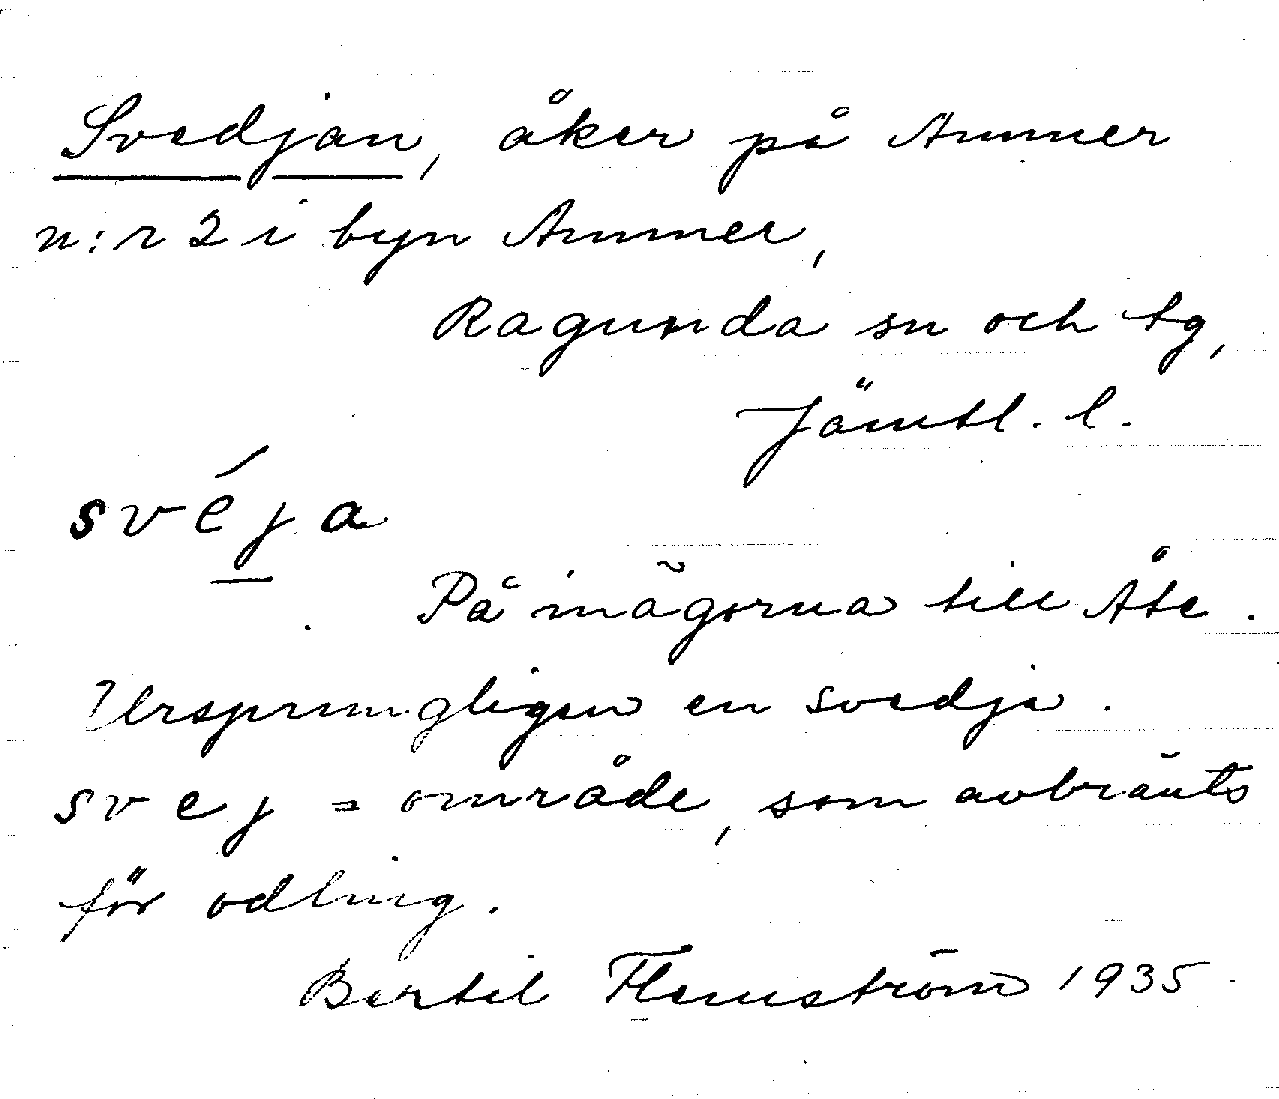 Svedjan, åker på Ammer
n:r 2 i byn Ammer,
Ragunda sn och tg,
Jämtl. l.
svéja
På inägorna till Åte.
Ursprungligen en svedja.
svej = område, som avbränts
för odling.
Bertil Flemström 1935